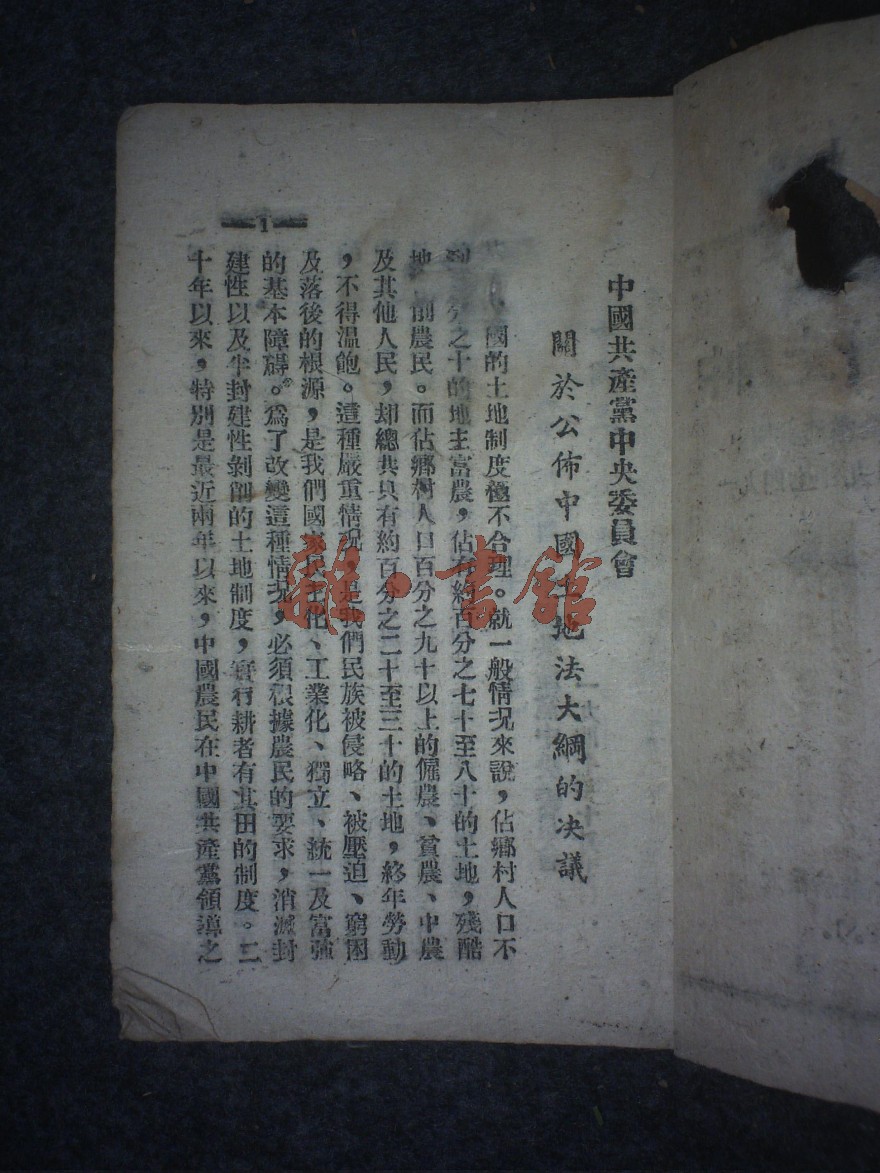 中國共產黨中央委員會
關於公佈中國土地法大綱的决議
國的土地制度極不合理。就一般情况來說，佔鄉村人口不
分之十的地主富農，佔有約百分之七十至八十的土地，殘酷
地 削農民。而佔鄉村人口百分之九十以上的僱農、貧農、中農
及其他人民，却總共只有約百分之二十至三十的土地，終年勞動
，不得溫飽。這種嚴重情况，是我們民族被侵略、被壓迫、窮困
及落後的根源，是我們國家民主化、工業化、獨立、統一及富強
的基本障碍。爲了改變這種情况，必須根據農民的要求，消滅封
建性以及半封建性剝削的土地制度，實行耕者有其田的制度。二
十年以來，特別是最近兩年以來，中國農民在中國共產黨領導之
1
雜·書館